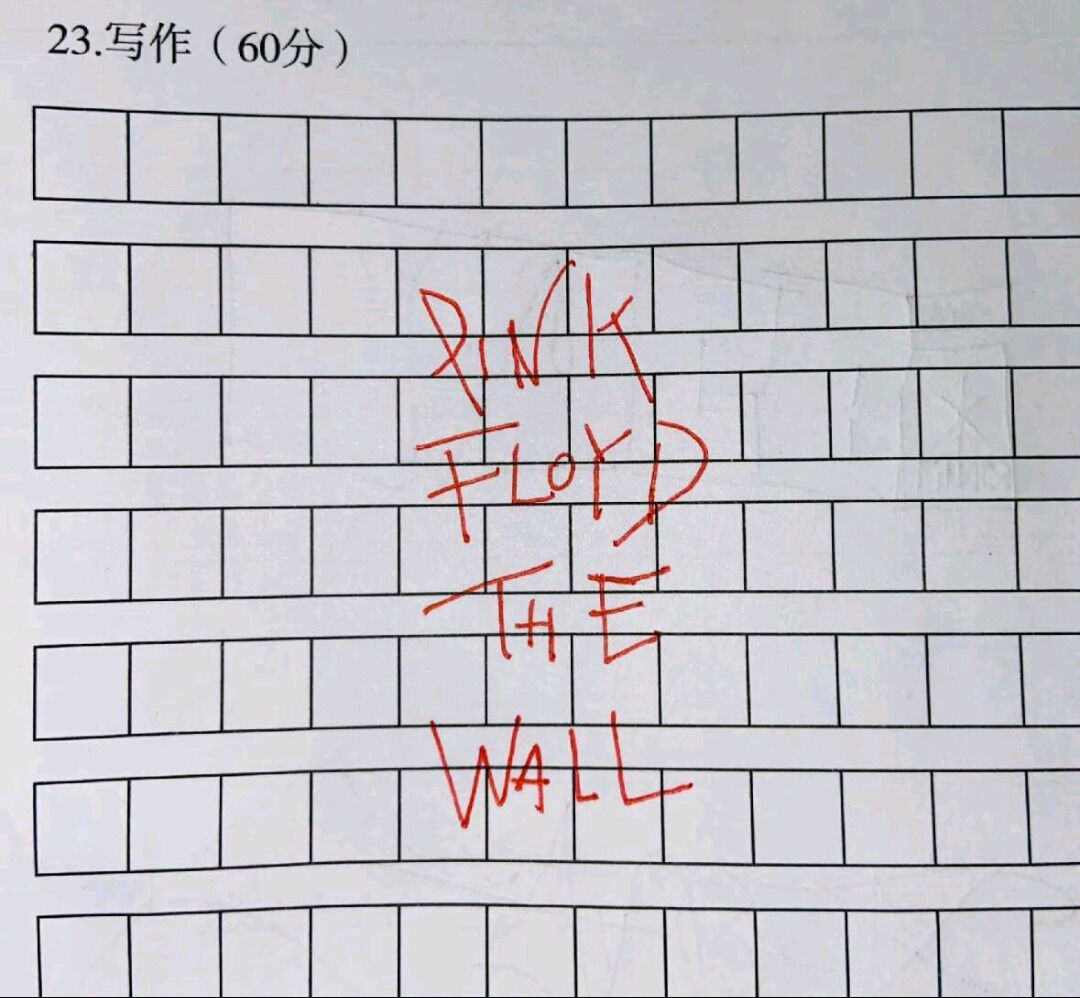 23.写作（60分）
PINK
FLOYD
THE
WALL